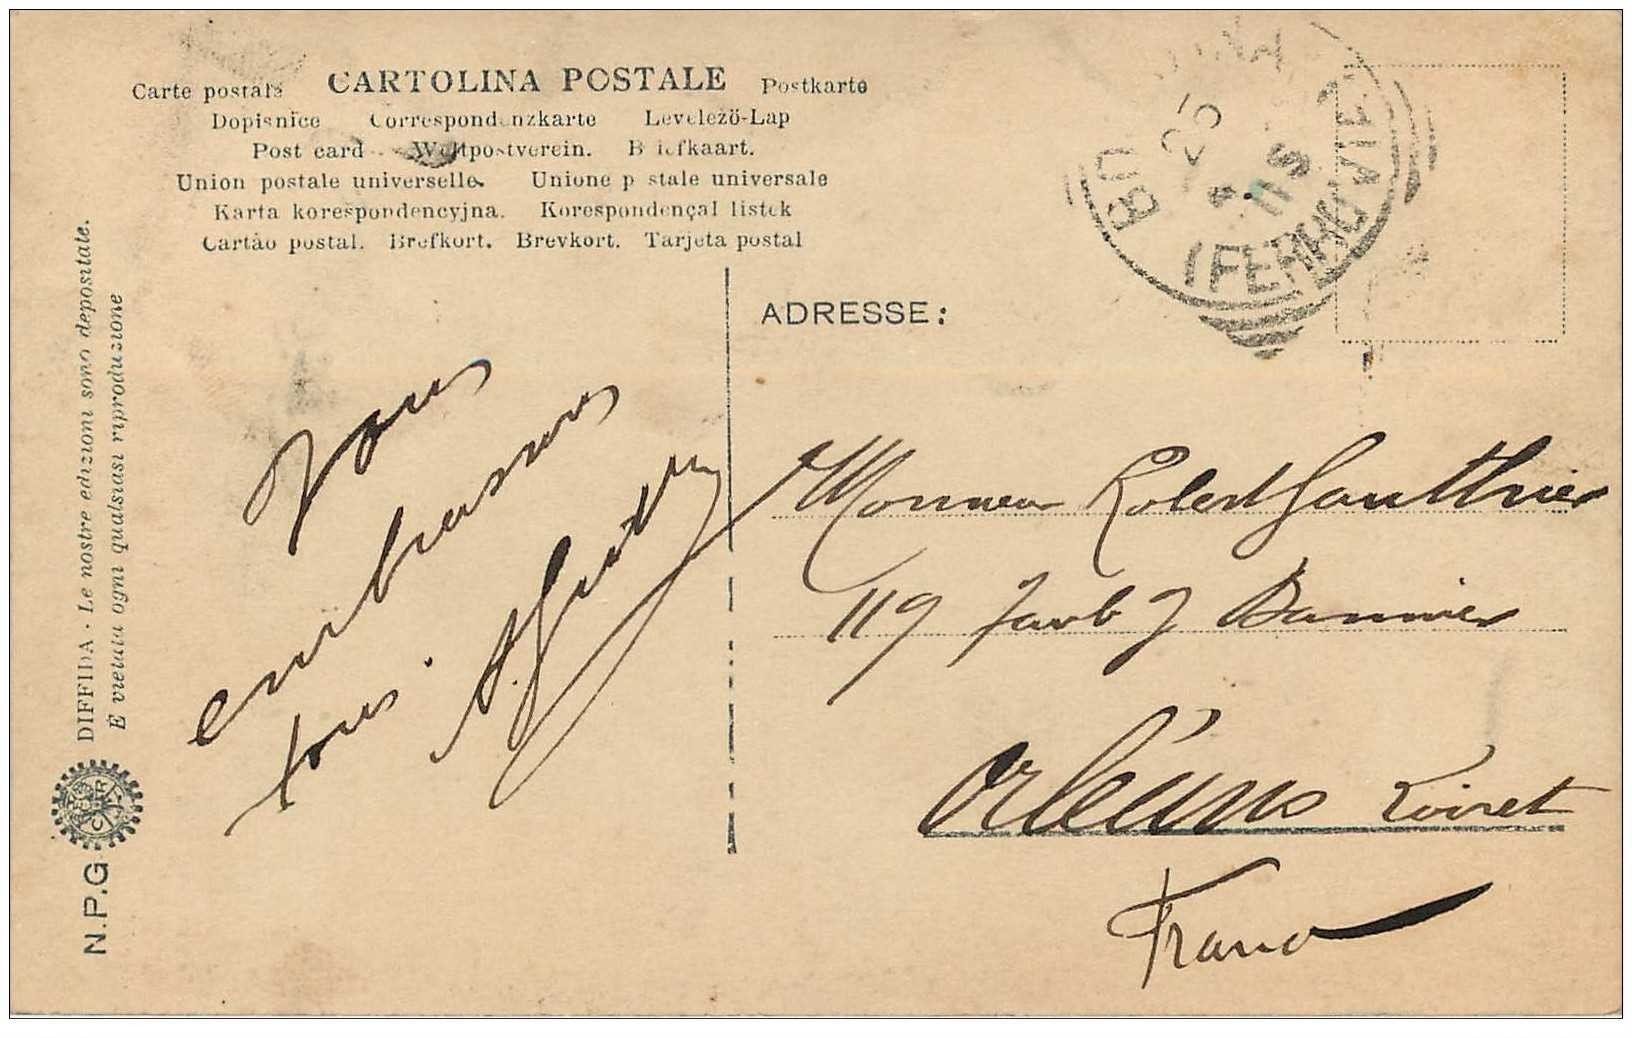 Carte postale CARTOLINA POSTALE Postkarte
Dopisnice Correspondenzkarte Levelező-Lap
Post card - Weltpostverein. Briefkaart.
Union postale universelle. Unione postale universale
Karta korespondencyjna. Korespondençal listek
Cartào postal. Brefkort. Brevkort. Tarjeta postal
DIFFIDA - Le nostre edizioni sono depositate.
È vietata ogni qualsiasi riproduzione
N.P.G
25
(FERROVIA)
ADRESSE:
Vous
embrassons
tous.
Monsieur Robert Gauthier
119 Faub g Bannier
Orléans Loiret
France